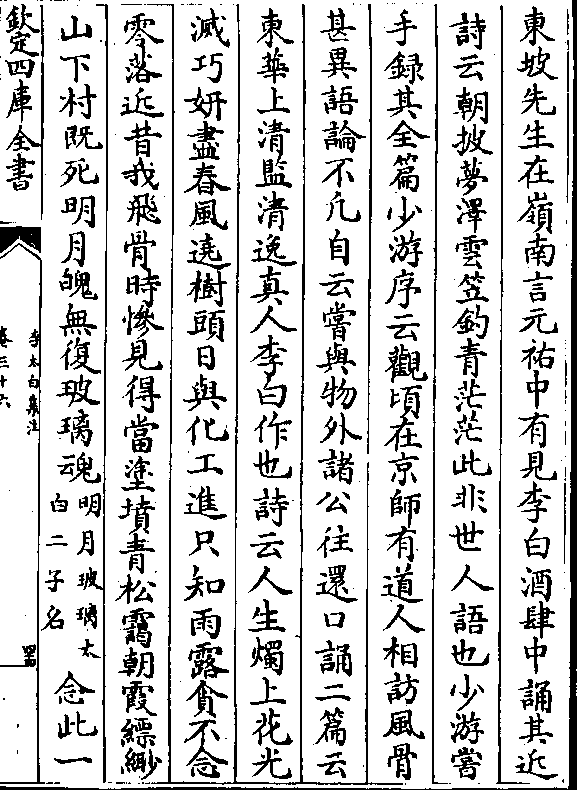 東坡先生在嶺南言元祐中有見李白酒肆中誦其近
詩云朝披夢澤雲笠釣青茫茫此非世人語也少游嘗
手録其全篇少游序云觀頃在京師有道人相訪風骨
甚異語論不凡自云嘗與物外諸公往還口誦二篇云
東華上清監清逸真人李白作也詩云人生燭上花光
滅巧妍盡春風遶樹頭日與化工進只知雨露貪不念
零落近昔我飛骨時慘見得當塗墳青松靄朝霞縹緲
山下村既死明月魄無復玻璃魂明月玻璃太白二子名念此一
欽定四庫全書
李太白集注
卷三十六